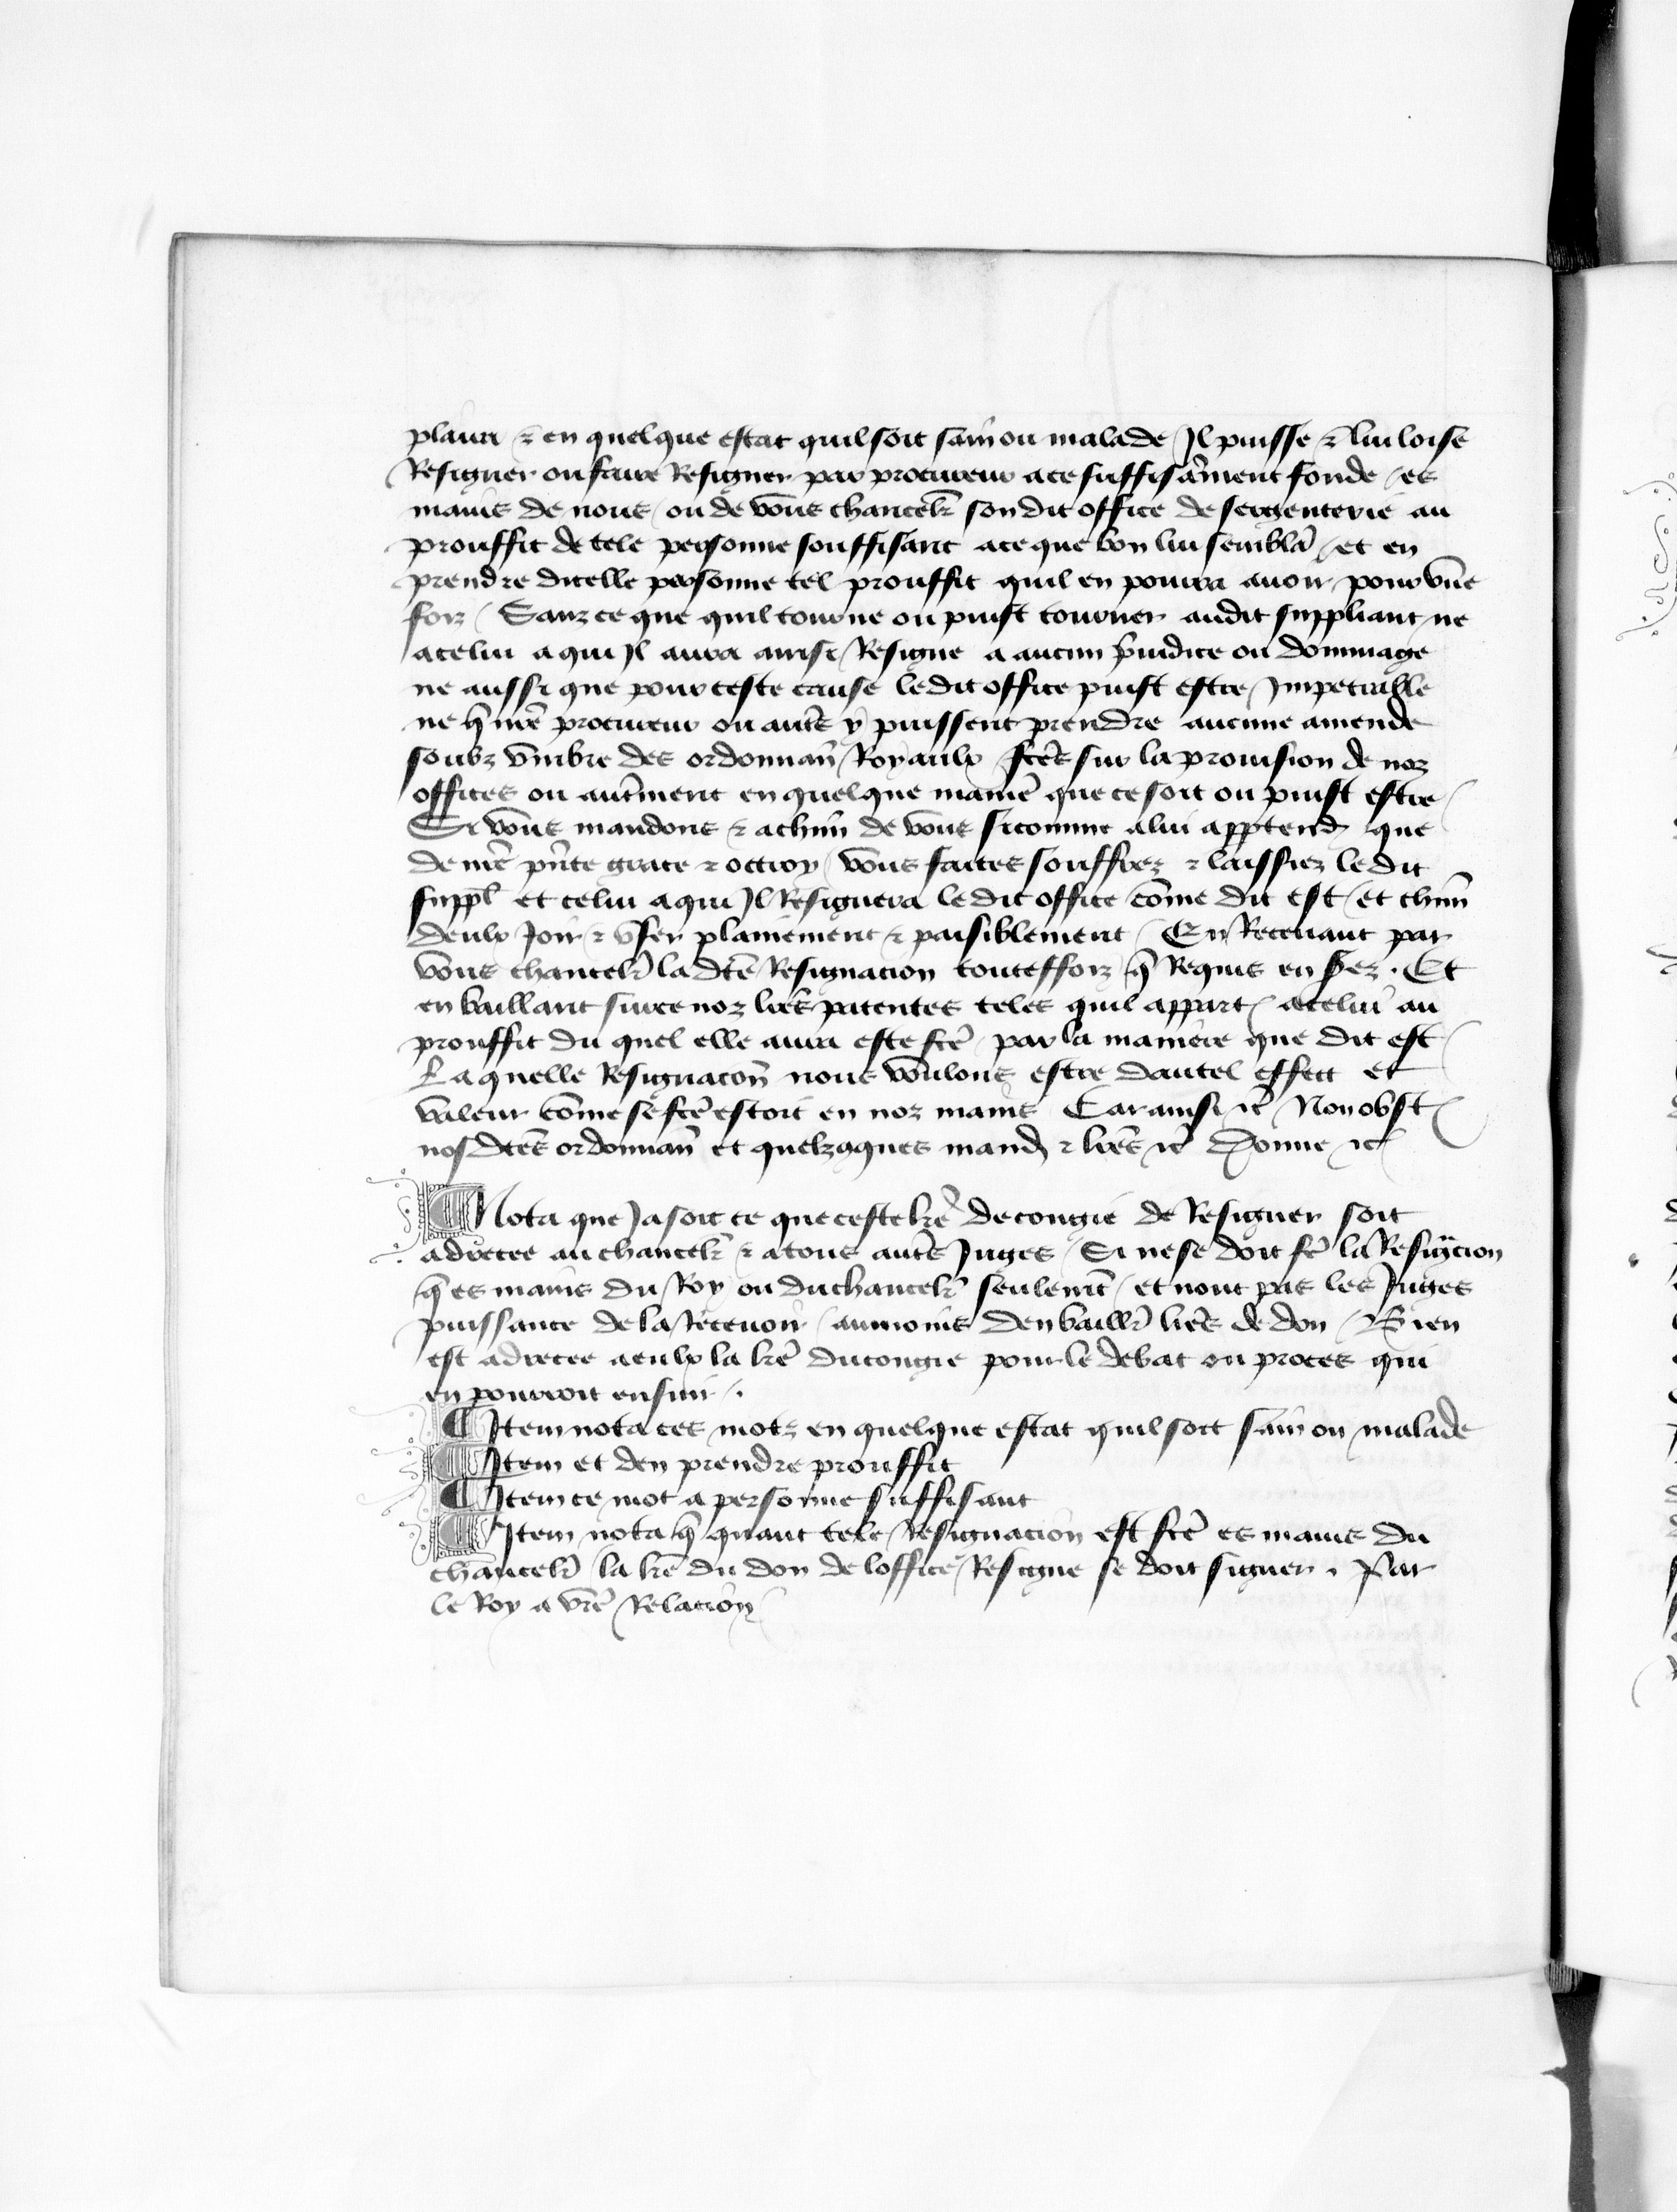 plaira & en quelque estat quil soit sain ou malade Il puisse & lui loise
Resigner ou faire Resigner par procureur a ce suffisãment fonde / es
mains de nous / ou de vous chancell̃ son dit office de sergenterie au
prouffit de tele personne souffisant a ce que bon lui semblã / et en
prendre dicelle personne tel prouffit quil en pourra auoir pour vñe
foiz / Sanz ce que quil tourne ou puist tourner audit suppliant ne
a celui a qui Il aura ainsi Resigne a aucun p̃iudice ou dommage
ne aussi que pour ceste cause ledit office puist estre Impetrable
ne q̃ nr̃e procureur ou aut̃s y puissent prendre aucune amende
soubz vmbre des ordonnañ Royaulx fc̃es sur la prouision de noz
offices ou aut̃ment en quelque manie͂ que ce soit ou puist estre /
Si vous mandons & a chũn de vous si comme a lui apptend̃ que
de nr̃e pñte grace & octroy vous faites souffrez & laissiez le dit
suppl̃ et celui a qui Il Resignera le dit office cõme dit est / et chũn
deulx Joir & vser plainement & paisiblement / En Receuant par
vous chancell̃ la dc̃e Resignacion touteffoiz q̃ Requis en serez . Et
en baillant sur ce noz lr̃es patentes teles quil appart̃ a celui au
prouffit du quel elle aura este fc̃e par la maniere que dit est /
Laquelle Resignacoñ nous voulons estre dautel effect et
valeur cõme se fc̃e estoit en noz mains Car ainsi &c̃ Non obst̃
nos dc̃es ordonnañ et quelzcõques mand̃ & lr̃es &c̃ Donne &c̃
¶ Nota que Ja soit ce que ceste lr̃e de congie de Resigner soit
adrecee au chancell̃ & a tous aut̃s Juges / Si ne se doit fe͂ la Resigcion
q̃ es mains du Roy ou du chancell̃ seulemt̃ / et nont pas les Juges
puissance de la Receuoir / aumoins den baill̃ lr̃es de don / Bien
est adrecee a eulx la lr̃e du congie pour le debat ou proces qui
en pourroit ensuir / .
¶ Item nota ces motz en quelque estat quil soit sain ou malade
¶ Item et den prendre prouffit
¶ Item ce mot a personne suffisant
¶ Item nota q̃ quant tele Resignacion est fc̃e es mains du
chancell̃ la lr̃e du don de loffice Resigne se doit signer . Par
le Roy a vr̃e Relacion